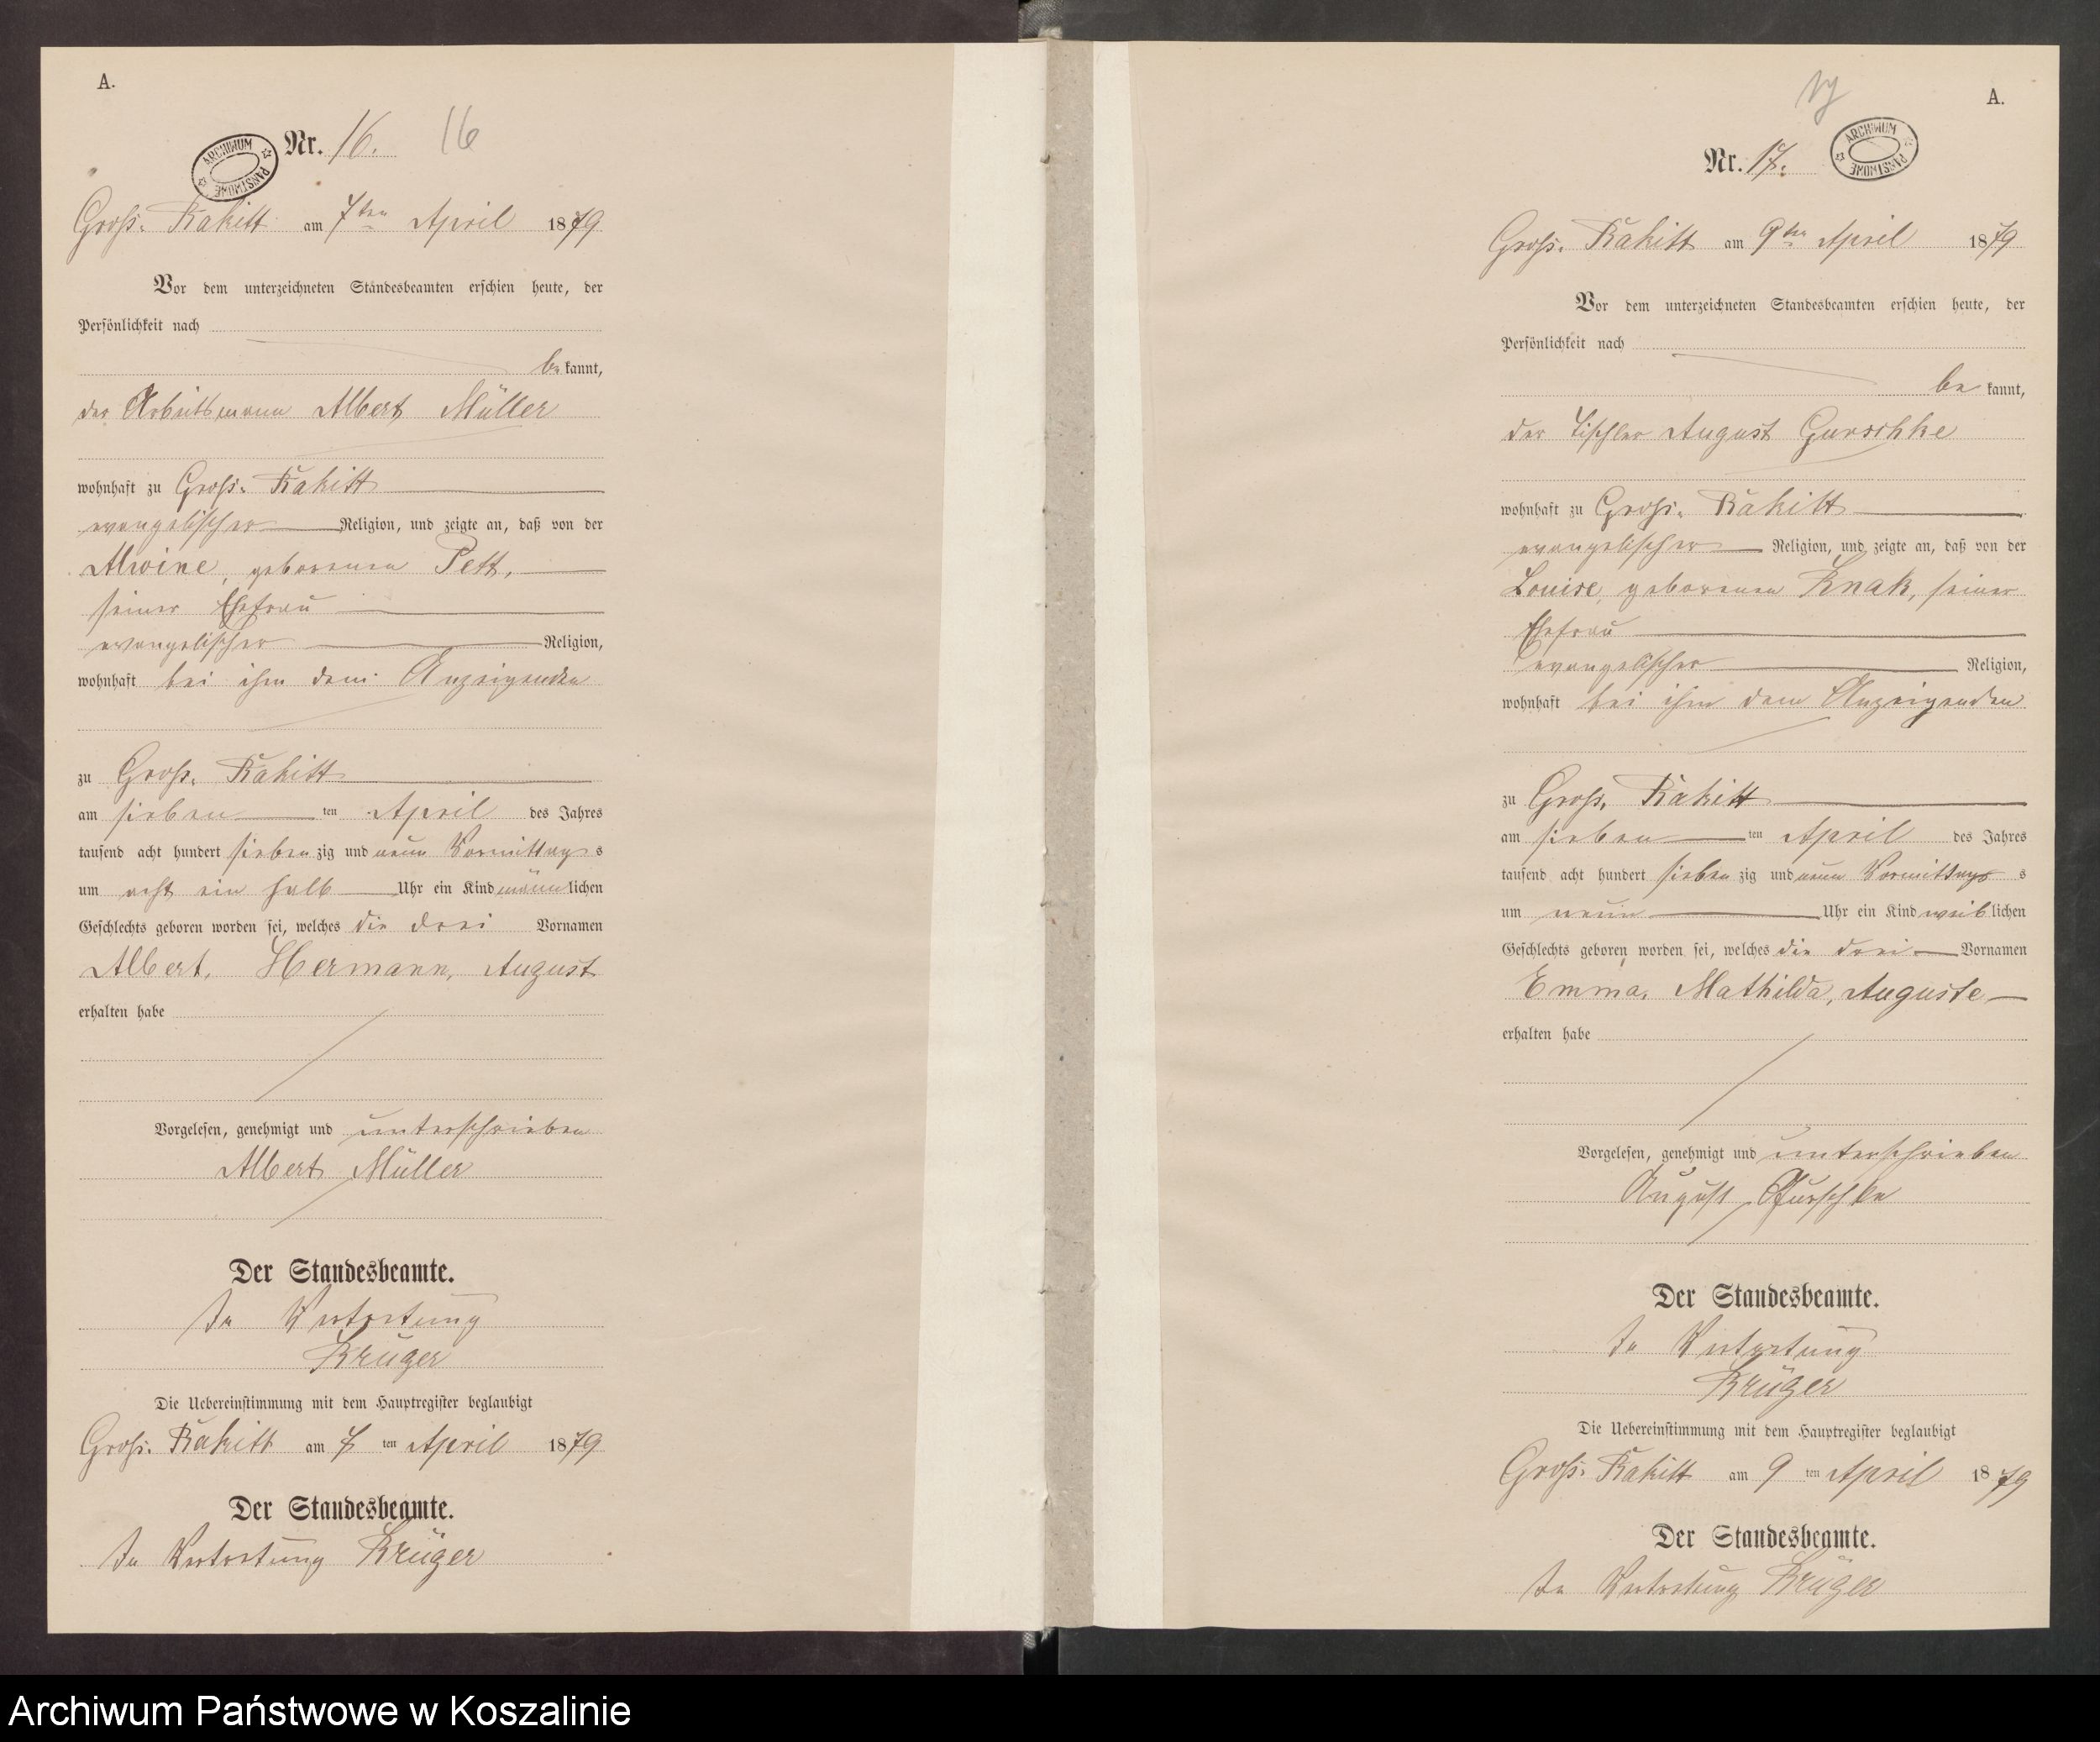 A.
Nr. 16. 16
ARCHIWUM PAŃSTWOWE
Groß. Rakitt am 7ten April 1879
Vor dem unterzeichneten Standesbeamten erschien heute, der
Persönlichkeit nach
bekannt,
der Arbeitsmann Albert Müller
wohnhaft zu Groß. Rakitt
evangelischer Religion, und zeigte an, daß von der
Alwine, geborenen Pett,
seiner Ehefrau
evangelischer Religion,
wohnhaft bei ihm dem Anzeigenden
zu Groß. Rakitt
am sieben ten April des Jahres
tausend acht hundert siebenzig und neun Vormittags
um acht ein halb Uhr ein Kind männlichen
Geschlechts geboren worden sei, welches die drei Vornamen
Albert, Hermann, August
erhalten habe
Vorgelesen, genehmigt und unterschrieben
Albert Müller
Der Standesbeamte.
In Vertretung
Krüger
Die Uebereinstimmung mit dem Hauptregister beglaubigt
Groß. Rakitt am 7 ten April 1879
Der Standesbeamte.
In Vertretung Krüger
17
A.
Nr. 17.
ARCHIWUM PAŃSTWOWE
Groß. Rakitt am 9ten April 1879
Vor dem unterzeichneten Standesbeamten erschien heute, der
Persönlichkeit nach
be kannt,
der Tischler August Gurschke
wohnhaft zu Groß. Rakitt
evangelischer Religion, und zeigte an, daß von der
Louise, geborenen Knak, seiner
Ehefrau
evangelischer Religion,
wohnhaft bei ihm dem Anzeigenden
zu Groß. Rakitt
am sieben ten April des Jahres
tausend acht hundert siebenzig und neun Vormittags s
um neun Uhr ein Kind weiblichen
Geschlechts geboren worden sei, welches die drei Vornamen
Emma, Mathilda, Auguste
erhalten habe
Vorgelesen, genehmigt und unterschrieben
August Gurschke
Der Standesbeamte.
In Vertretung
Krüger
Die Uebereinstimmung mit dem Hauptregister beglaubigt
Groß. Rakitt am 9 ten April 1879
Der Standesbeamte.
In Vertretung Krüger
Archiwum Państwowe w Koszalinie